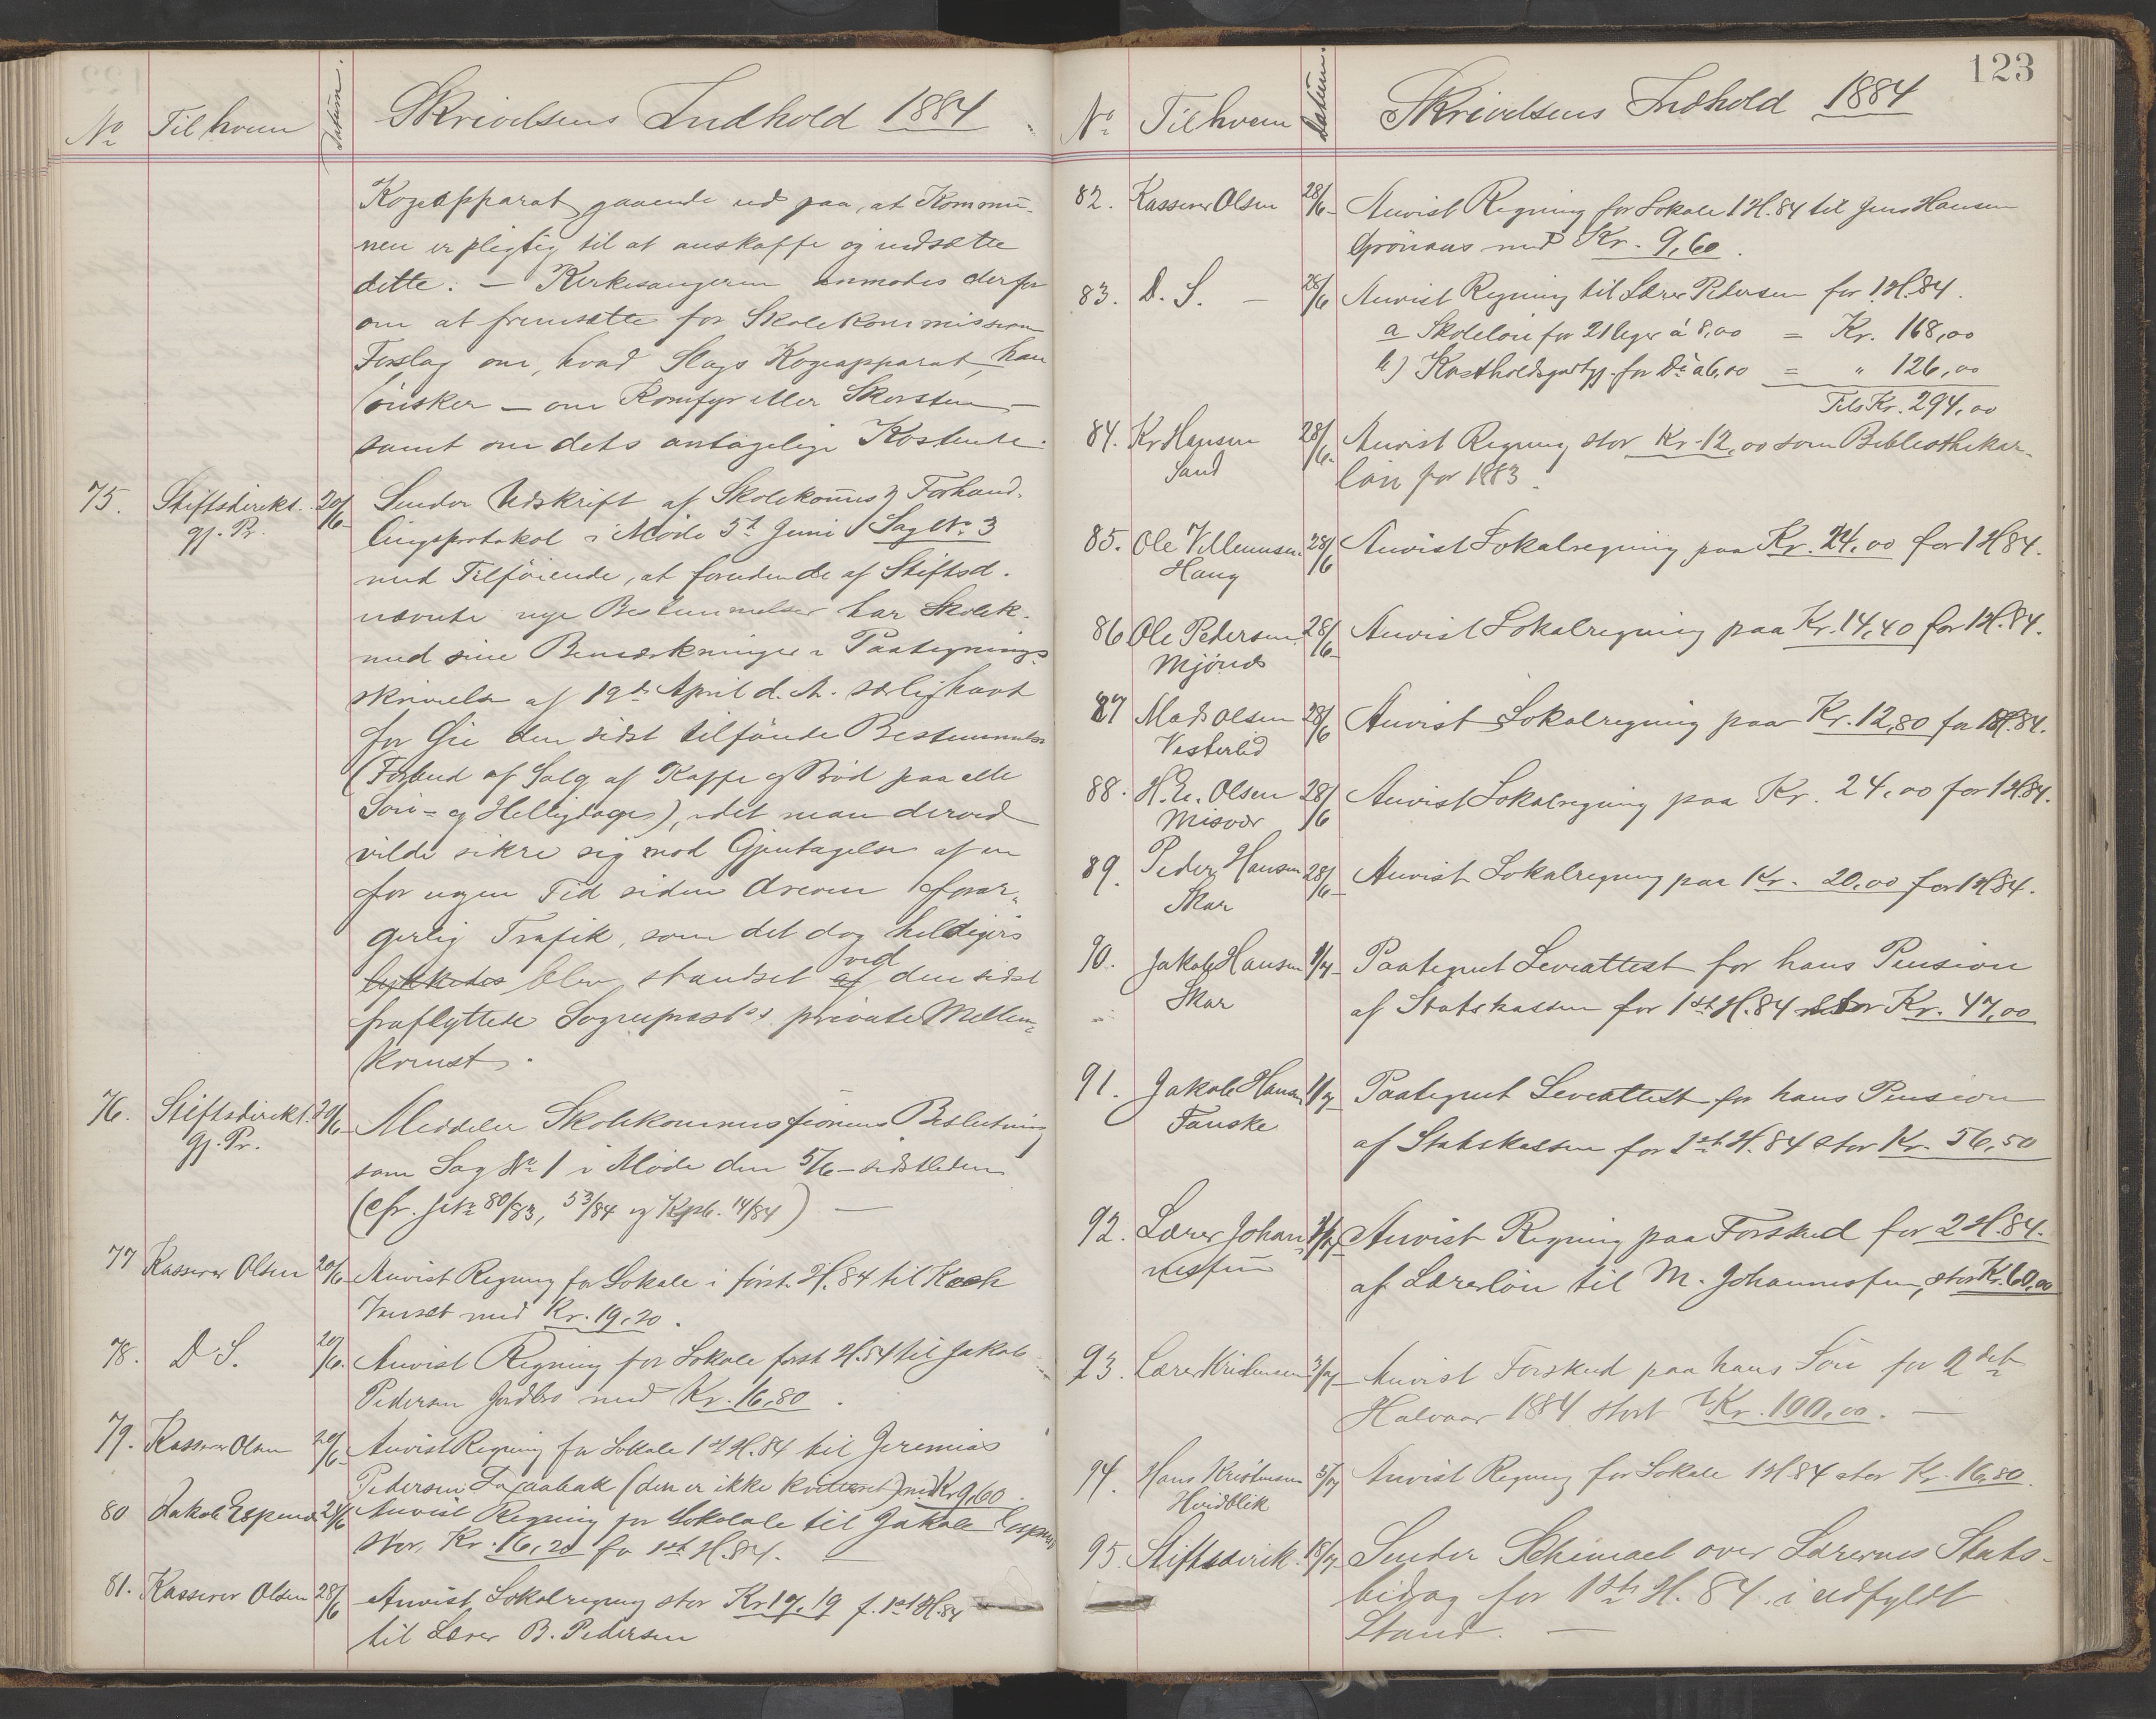 No Til hvem Datum. Skrivelsens Indhold 1884
Kogeapparat, gaaende ud paa, at Kommu-
nen er pligtig til at anskaffe og indsætte
dette. — Kirkesangeren anmodes derfor
om at fremsætte for Skolekommissionen
Forslag om, hvad Slags Kogeapparat, han
ønsker — om Komfyr eller Skorsten —
samt om dets antagelige Kostende.
75. Stiftsdirekt. 20/6 Sender Udskrift af Skolekommiss Forhand-
gj. Pr. lingsprotokol i Møde 5te Juni Sag No. 3
med Tilføiende, at foruden de af Stiftsd.
nævnte nye Bestemmelser har Skolek.
med sine Bemærkninger i Paategnings-
skrivelse af 19de April d. A. særlig havt
for Øie den sidst tilføiede Bestemmelse
(Forbud af Salg af Kaffe og Brød paa alle
Søn- og Helligdage), idet man derved
vilde sikre sig mod Gjentagelse af en
for nogen Tid siden dreven forar-
gerlig Trafik, som det dog heldigvis
lykkedes blev standset af ved den sidst
fraflyttede Sogneprests private Mellem-
komst.
76. Stiftsdirekt. 20/6 Meddeler Skolekommissionens Beslutning
gj. Pr. som Sag No 1 i Møde den 5/6 sidstleden
(cfr. 80/83, 53/84 og Kpb. 14/84) —
77 Kasserer Olsen 20/6 Anvist Regning for Lokale i første H. 84 til
med Kr. 19,20.
78. D S. 20/6. Anvist Regning for Lokale først H. 54 til Jakob
Pedersen Jordbro med Kr. 16,80.
79. Kasserer Olsen 20/6 Anvist Regning for Lokale 1st H. 84 til Jeremias
Pedersen (den er ikke kvitteret) med Kr 9,60.
80 Jakob Espens 24/6 Anvist Regning for Lokolale til Jakob Espens
stor, Kr. 16,20 for 1ste H. 84.
81. Kasserer Olsen 28/6 Anvist Lokalregning stor Kr 17,19 f. 1st H. 84
til Lærer B. Pedersen
123
No Til hvem Datum. Skrivelsens Indhold 1884
82. Kasserer Olsen 28/6 Anvist Regning for Lokale 1 H. 84 til Jens Hansen
Grønaas med Kr. 9,60.
83. D. S. — 28/6 Anvist Regning til Lærer Pedersen for 1 H. 84.
a Skoleløn for 21 Uger á 8,00 = Kr. 168,00
b) Kostholdsgodtgj. for Do a 6,00 = " 126,00
Tils Kr. 294,00
84. Kr Hansen 28/6 Anvist Regning stor Kr. 12,00 som Bibliothekar-
Sand løn for 1883.
85. Ole Villumsen 28/6 Anvist Lokalregning paa Kr. 24,00 for 1 H 84.
Haug
86 Ole Pedersen 28/6 Anvist Lokalregning paa Kr. 14,40 for 1 H. 84.
Mjønes
87 Mads Olsen 28/6 Anvist Lokalregning paa Kr. 12,80 for 1 H. 84.
Vesterlid
88. H. E. Olsen 28/6 Anvist Lokalregning paa Kr. 24,00 for 1 H 84.
Misvær
89. Peder Hansen 28/6 Anvist Lokalregning paa Kr. 20,00 for 1 H 84.
Skar
90. Jakob Hansen 1/7 Paategnet Leveattest for hans Pension
Skar af Statskassen for 1ste H. 84 stor Kr. 47,00
91. Jakob Hansen 1/7 Paategnet Leveattest for hans Pension
Fauske af Statskassen for 1ste H. 84 stor Kr. 56,50
92. Lærer Johan 1/7 Anvist Regning paa Forskud for 2 H. 84.
nessen af Lærerløn til M. Johannessen, stor Kr. 60,00
93. Lærer Kristensen 3/7 Anvist Forskud paa hans Løn for 2det
Halvaar 1884 stort Kr. 100,00. —
94. Hans Kristensen 5/7 Anvist Regning for Lokale 1 H 84 stor Kr. 16,80.
Hvidblik
95. Stiftsdirek. 18/7 Sender Schemael over Lærernes Stats-
bidrag for 1ste H. 84. i udfyldt
Stand. —